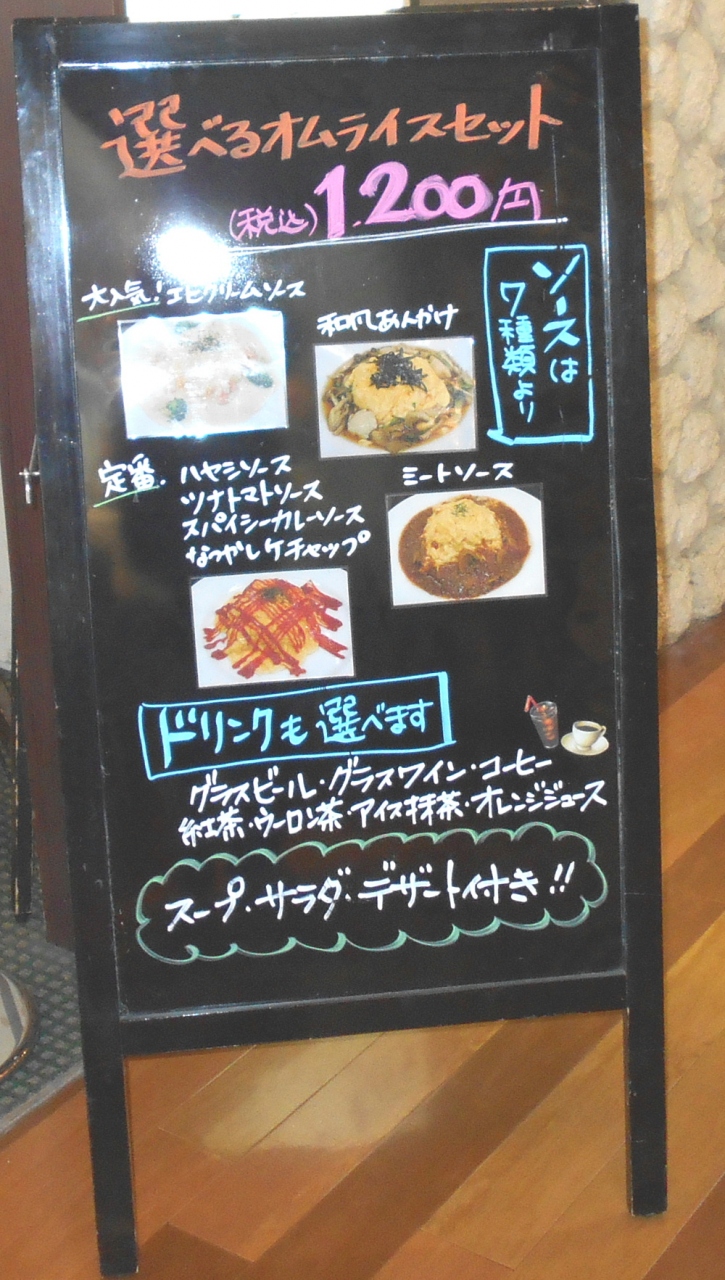 選べるオムライスセット
(税込)1,200円
ソースは
7種類より
大人気!エビクリームソース
和風あんかけ
定番.ハヤシソース
ツナトマトソース
スパイシーカレーソース
なつかしケチャップ
ミートソース
ドリンクも選べます
グラスビール・グラスワイン・コーヒー
紅茶・ウーロン茶・アイス抹茶・オレンジジュース
スープ・サラダ・デザート付き!!